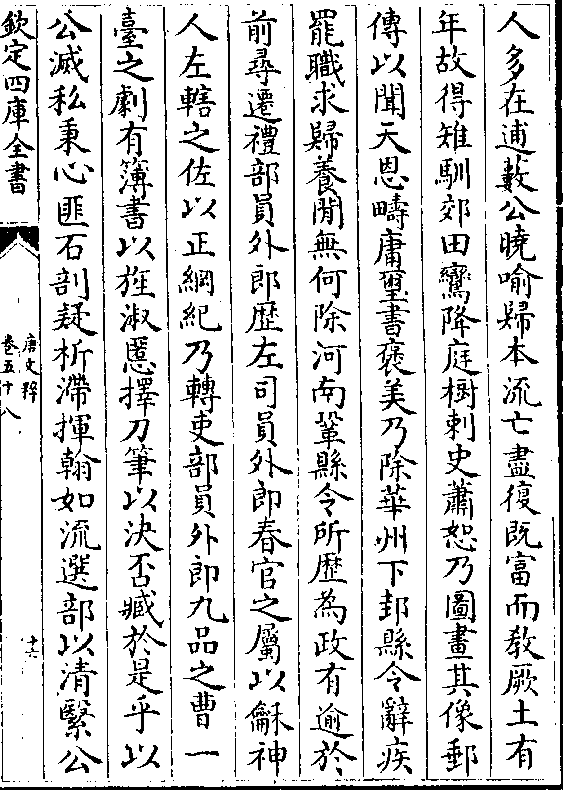 人多在逋藪公曉喻歸本流亡盡復既富而教厥土有
年故得雉馴郊田鸞降庭樹刺史蕭恕乃圖畫其像郵
傳以聞天恩疇庸璽書褒美乃除華州下邽縣令辭疾
罷職求歸養閒無何除河南鞏縣令所歴為政有逾於
前尋遷禮部員外郎歴左司員外郎春官之屬以龢神
人左轄之佐以正綱紀乃轉吏部員外郎九品之曹一
臺之劇有簿書以旌淑慝擇刀筆以決否臧於是乎以
公滅私秉心匪石剖疑析滯揮翰如流選部以清繄公
欽定四庫全書
唐文粹
卷五十八
十六